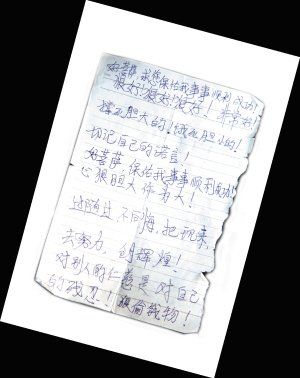 好菩萨 求你保佑我事事顺利成功!
很好!很好!很好! 非常好!
撑死胆大的!饿死胆小的!
切记自己的诺言!
好菩萨 保佑我事事顺利成功!
心狠胆大作男人!
过 不回悔,把现来,
去努力, 创辉煌!
对别人的仁慈是对自己
的残忍! 偷钱物!